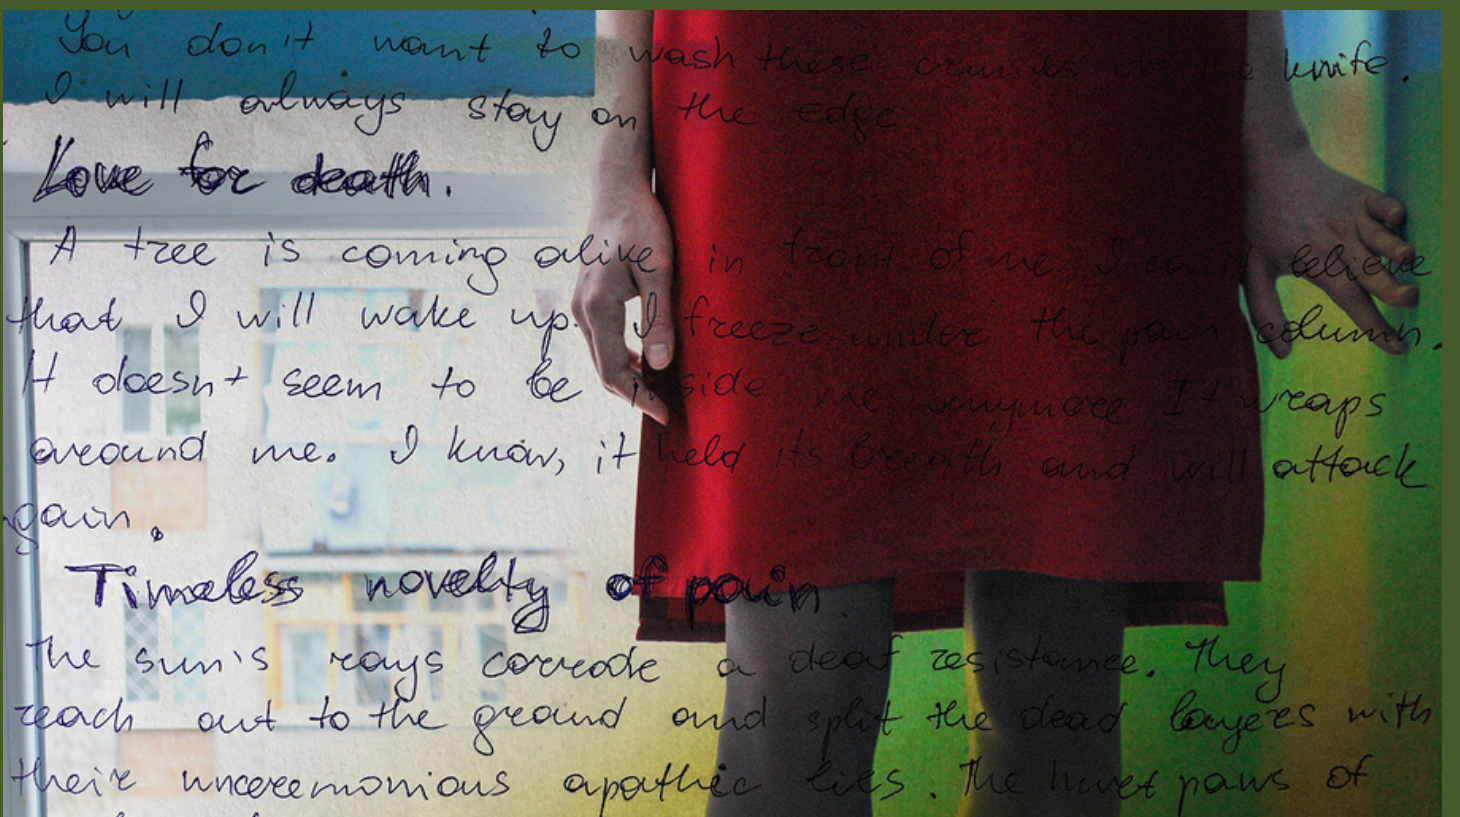 You don't want to wash these crumbs in the knife.
I will always stay on the edge.
Love for death.
A tree is coming alive in front of me I can't believe
that I will wake up. I freeze under the pain column.
It doesn't seem to be inside me anymore It wraps
around me. I know, it held its breath and will attack
gain.
Timeless novelty of pain.
The sun's rays corrode a deaf resistance. They
reach out to the ground and split the dead layers with
their unceremonious apathic lies. The paws of